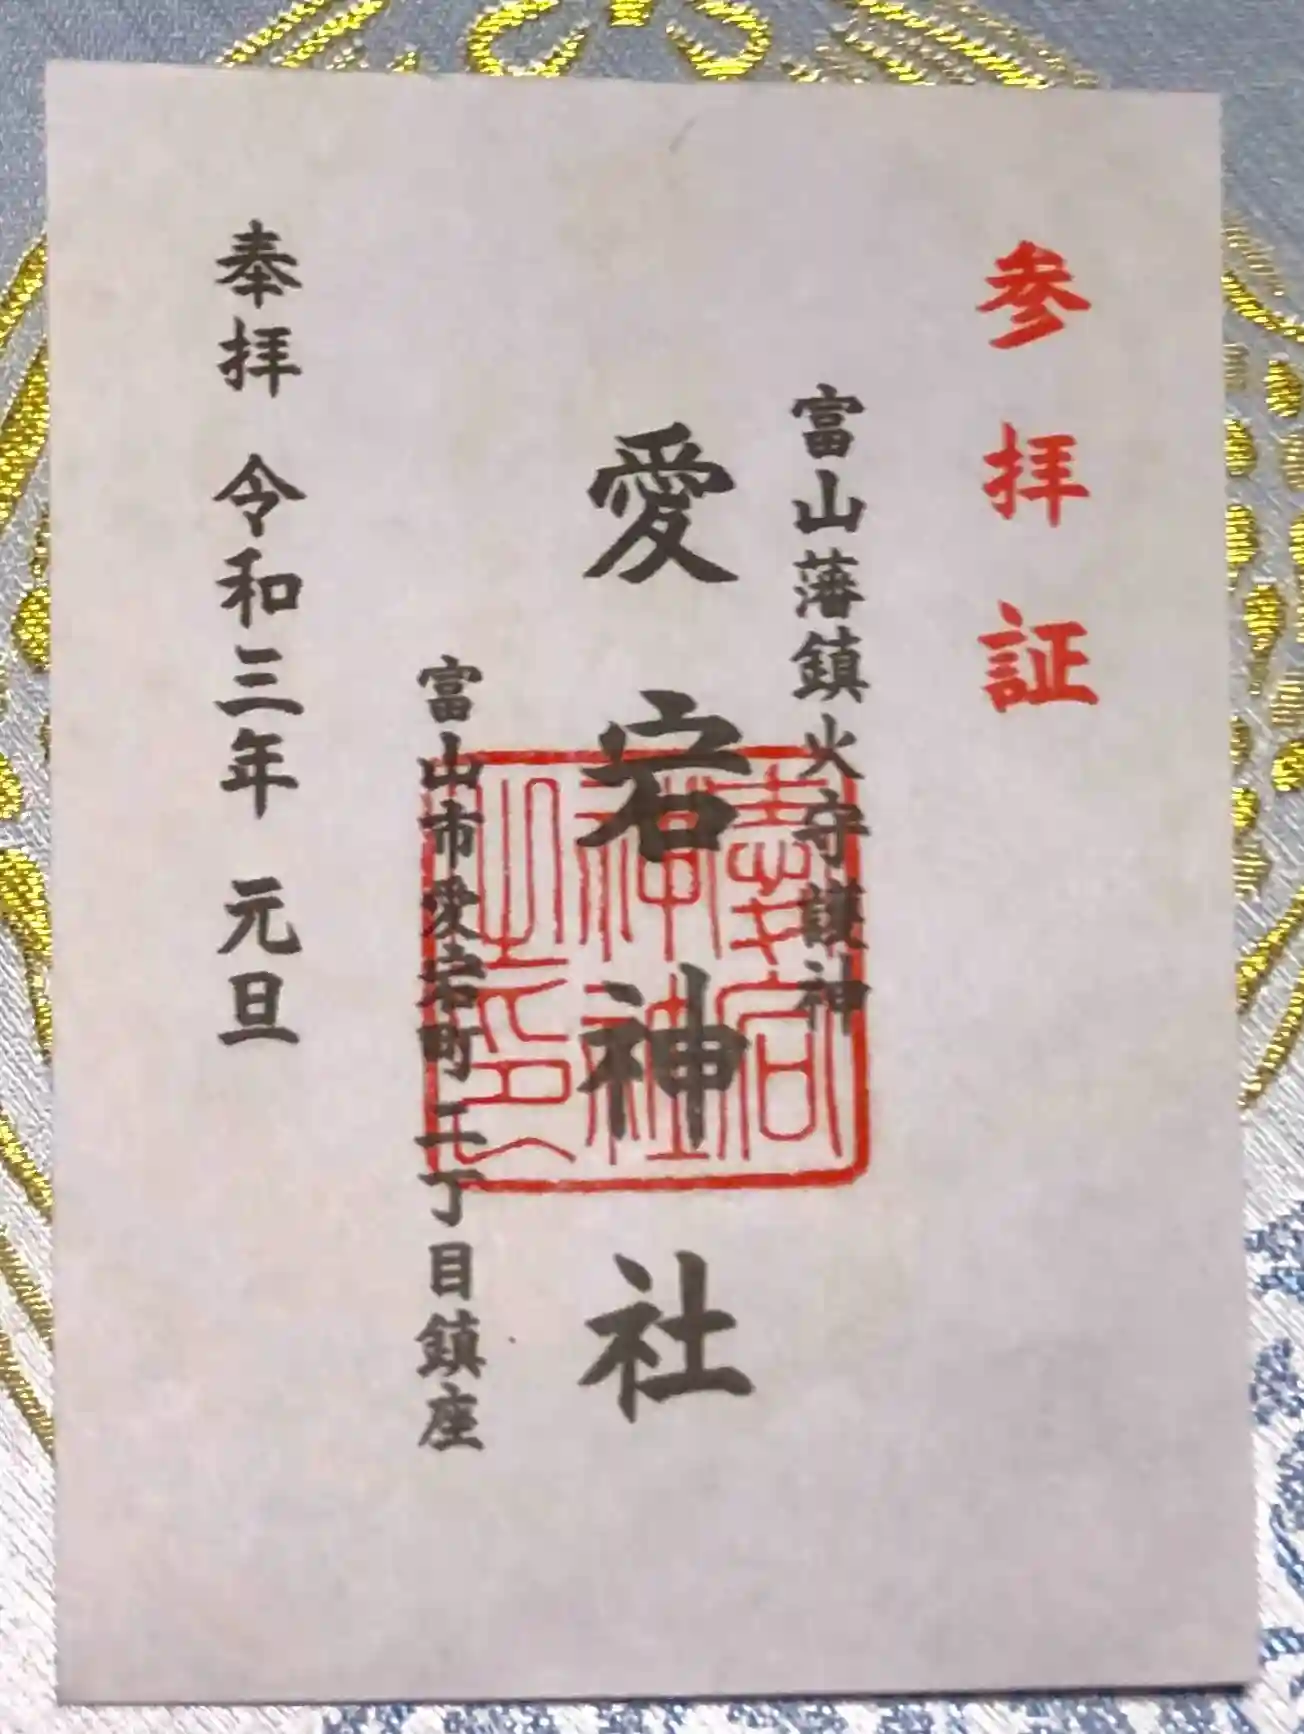 参拝証
富山藩鎮火守護神
愛宕神社
富山市愛宕町二丁目鎮座
奉拝 令和三年 元旦
愛宕
神社
之印